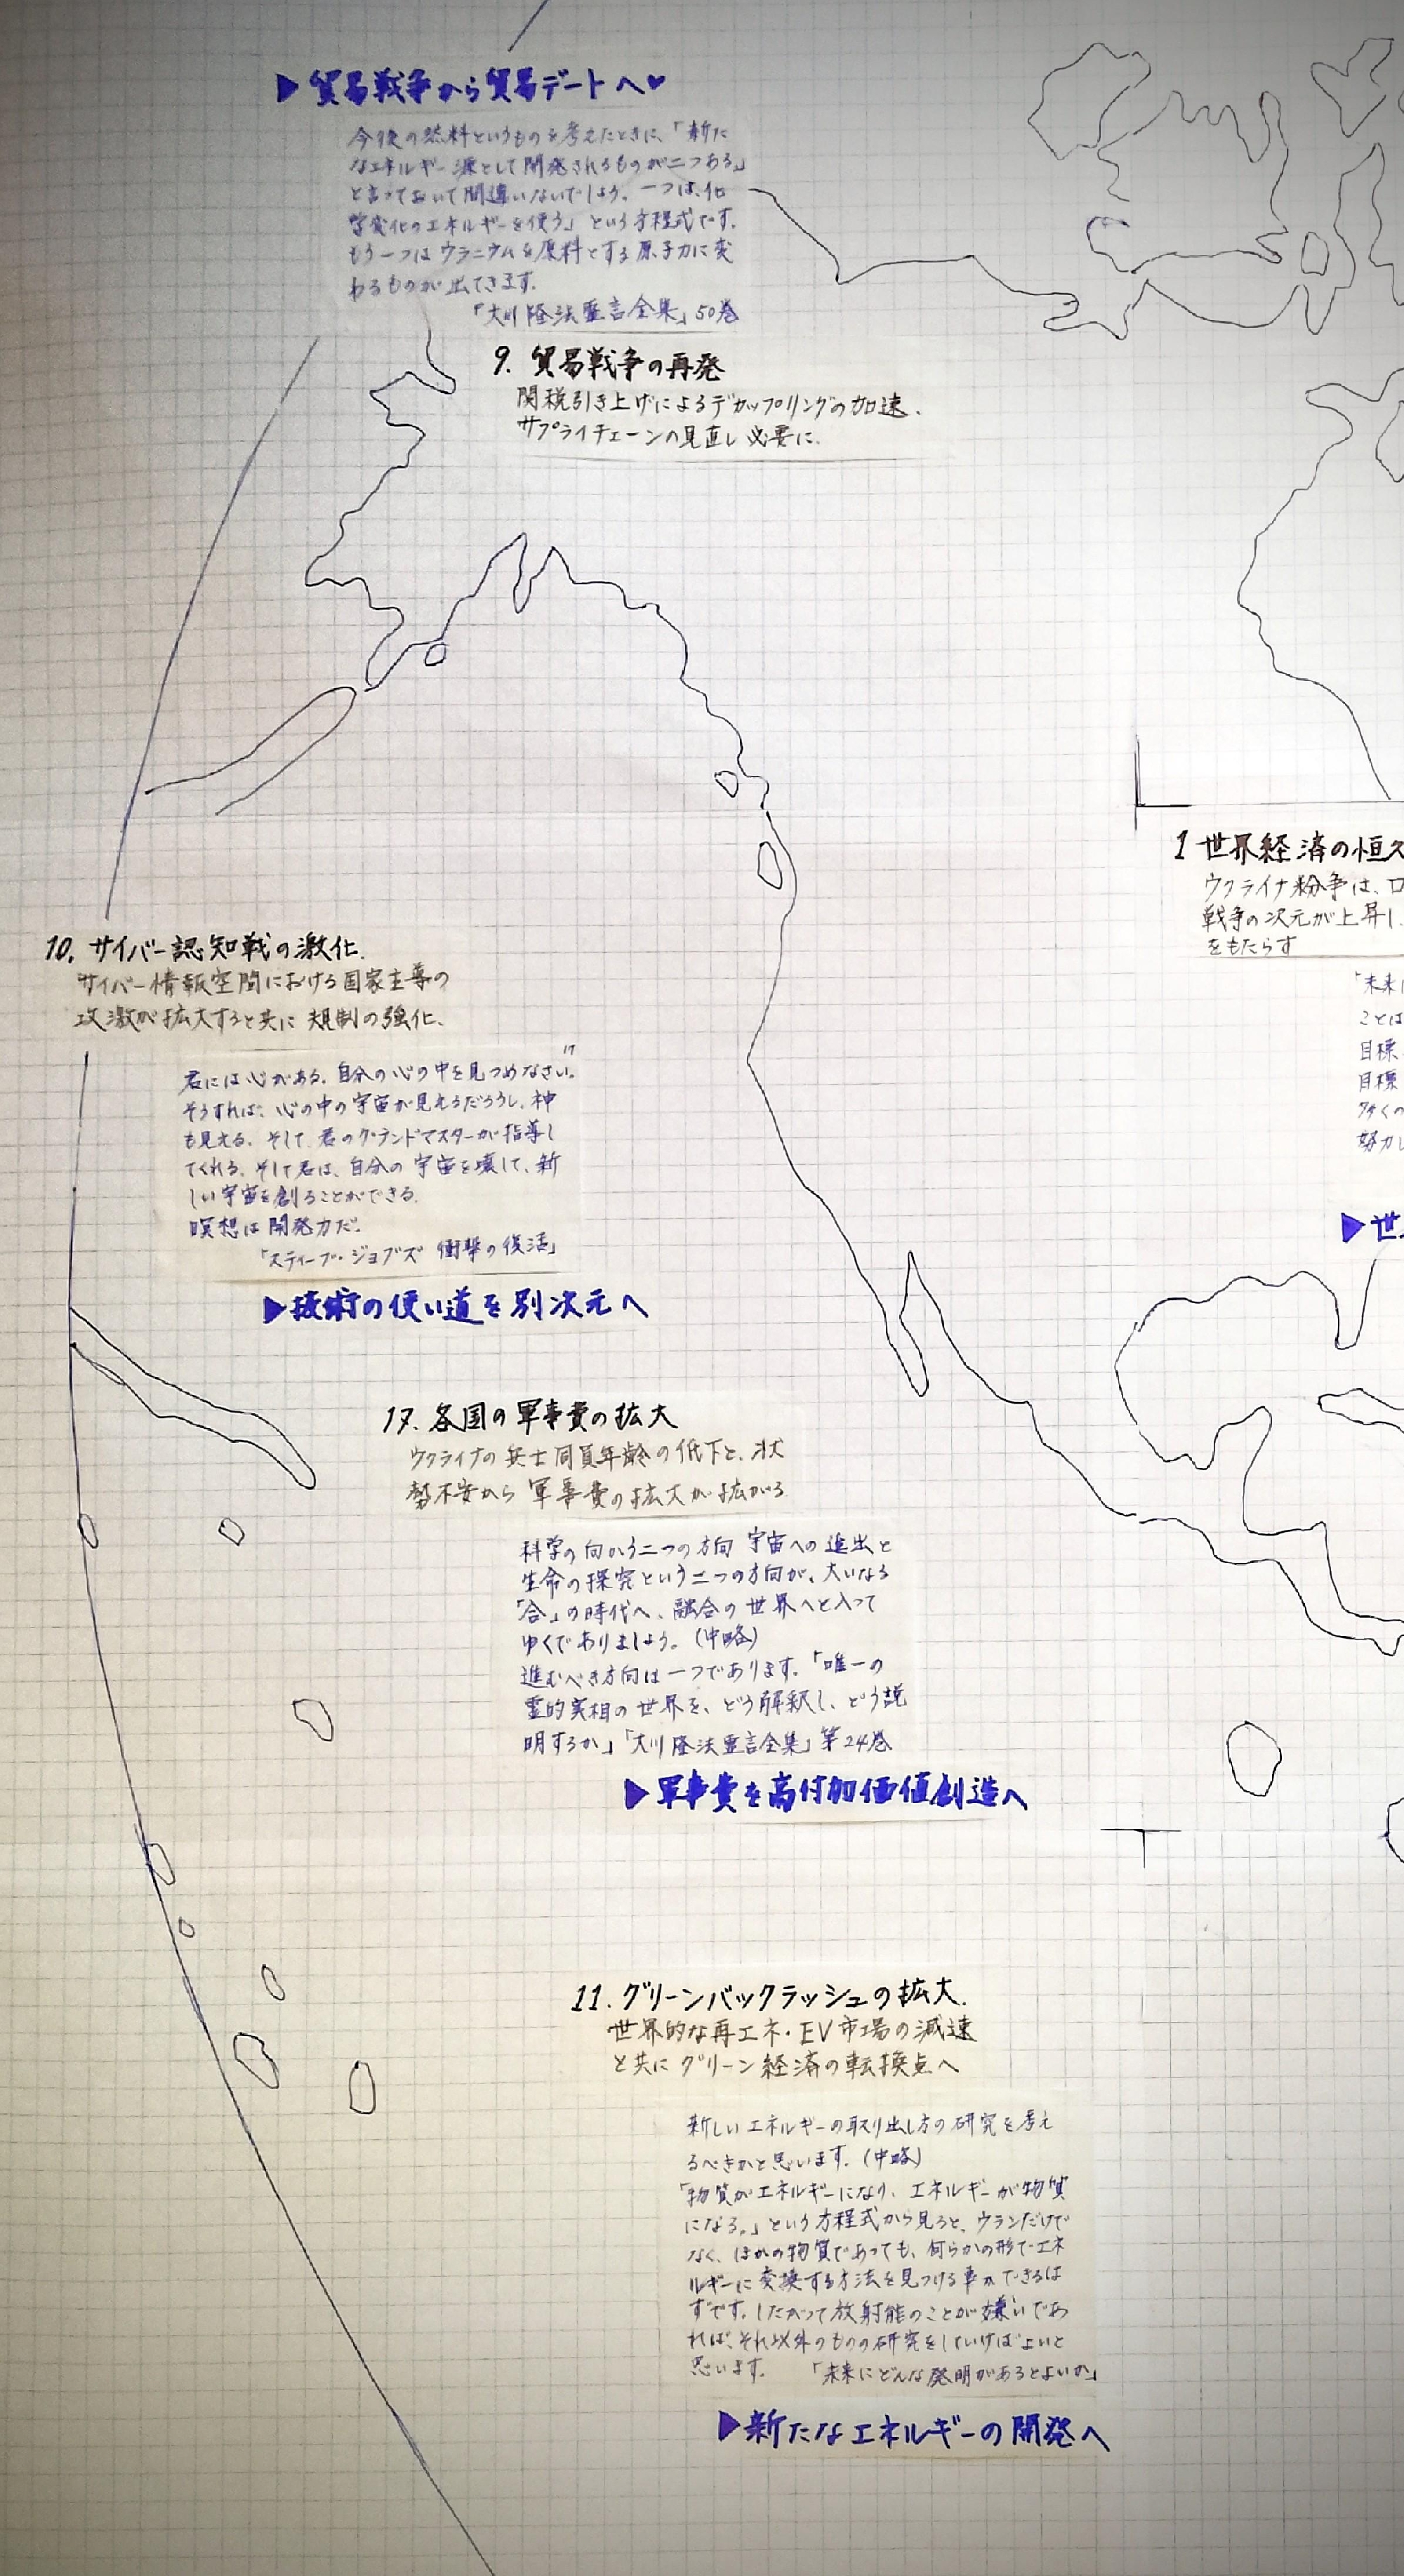 ▶貿易戦争から貿易デートへ♥
今後の燃料というものを考えたときに、「新た
なエネルギー源として開発されるものが二つある」
と言っておいて間違いないでしょう。一つは、化
学変化のエネルギーを使う」という方程式です。
もう一つはウラニウムを原料とする原子力に変
わるものが出てきます。
「大川隆法霊言全集」50巻
9. 貿易戦争の再発
関税引き上げによるデカップリングの加速.
サプライチェーンの見直し必要に.
1 世界経済の恒久
ウクライナ紛争は、ロ
戦争の次元が上昇し
をもたらす
「未来
ことは
目標
目標
多くの
努力し
▶世
10. サイバー認知戦の激化.
サイバー情報空間における国家主導の
攻激が拡大すると共に 規制の強化.
君には心がある。自分の心の中を見つめなさい。
そうすれば、心の中の宇宙が見えるだろうし、神
も見える。そして、君のグランドマスターが指導し
てくれる。そして君は、自分の宇宙を壊して、新
しい宇宙を創ることができる。
瞑想は開発力だ。
「スティーブ・ジョブズ 衝撃の復活」
▶技術の使い道を別次元へ
17. 各国の軍事費の拡大
ウクライナの兵士同員年齢の低下と、状
勢不安から 軍事費の拡大が拡がる
科学の向かう二つの方向 宇宙への進出と
生命の探究という二つの方向が、大いなる
「合」の時代へ、融合の世界へと入って
ゆくでありましょう。(中略)
進むべき方向は一つであります。「唯一の
霊的実相の世界を、どう解釈し、どう説
明するか」「大川隆法霊言全集」第24巻
▶軍事費を高付加価値創造へ
11. グリーンバックラッシュの拡大.
世界的な再エネ・EV市場の減速
と共にグリーン経済の転換点へ
新しいエネルギーの取り出し方の研究を考え
るべきかと思います。(中略)
「物質がエネルギーになり、エネルギーが物質
になる。」という方程式から見ると、ウランだけで
なく、ほかの物質であっても、何らかの形でエネ
ルギーに変換する方法を見つける事ができるは
ずです。したがって放射能のことが嫌いであ
れば、それ以外のものの研究をしていけばよいと
思います。 「未来にどんな発明があるとよいか」
▶新たなエネルギーの開発へ